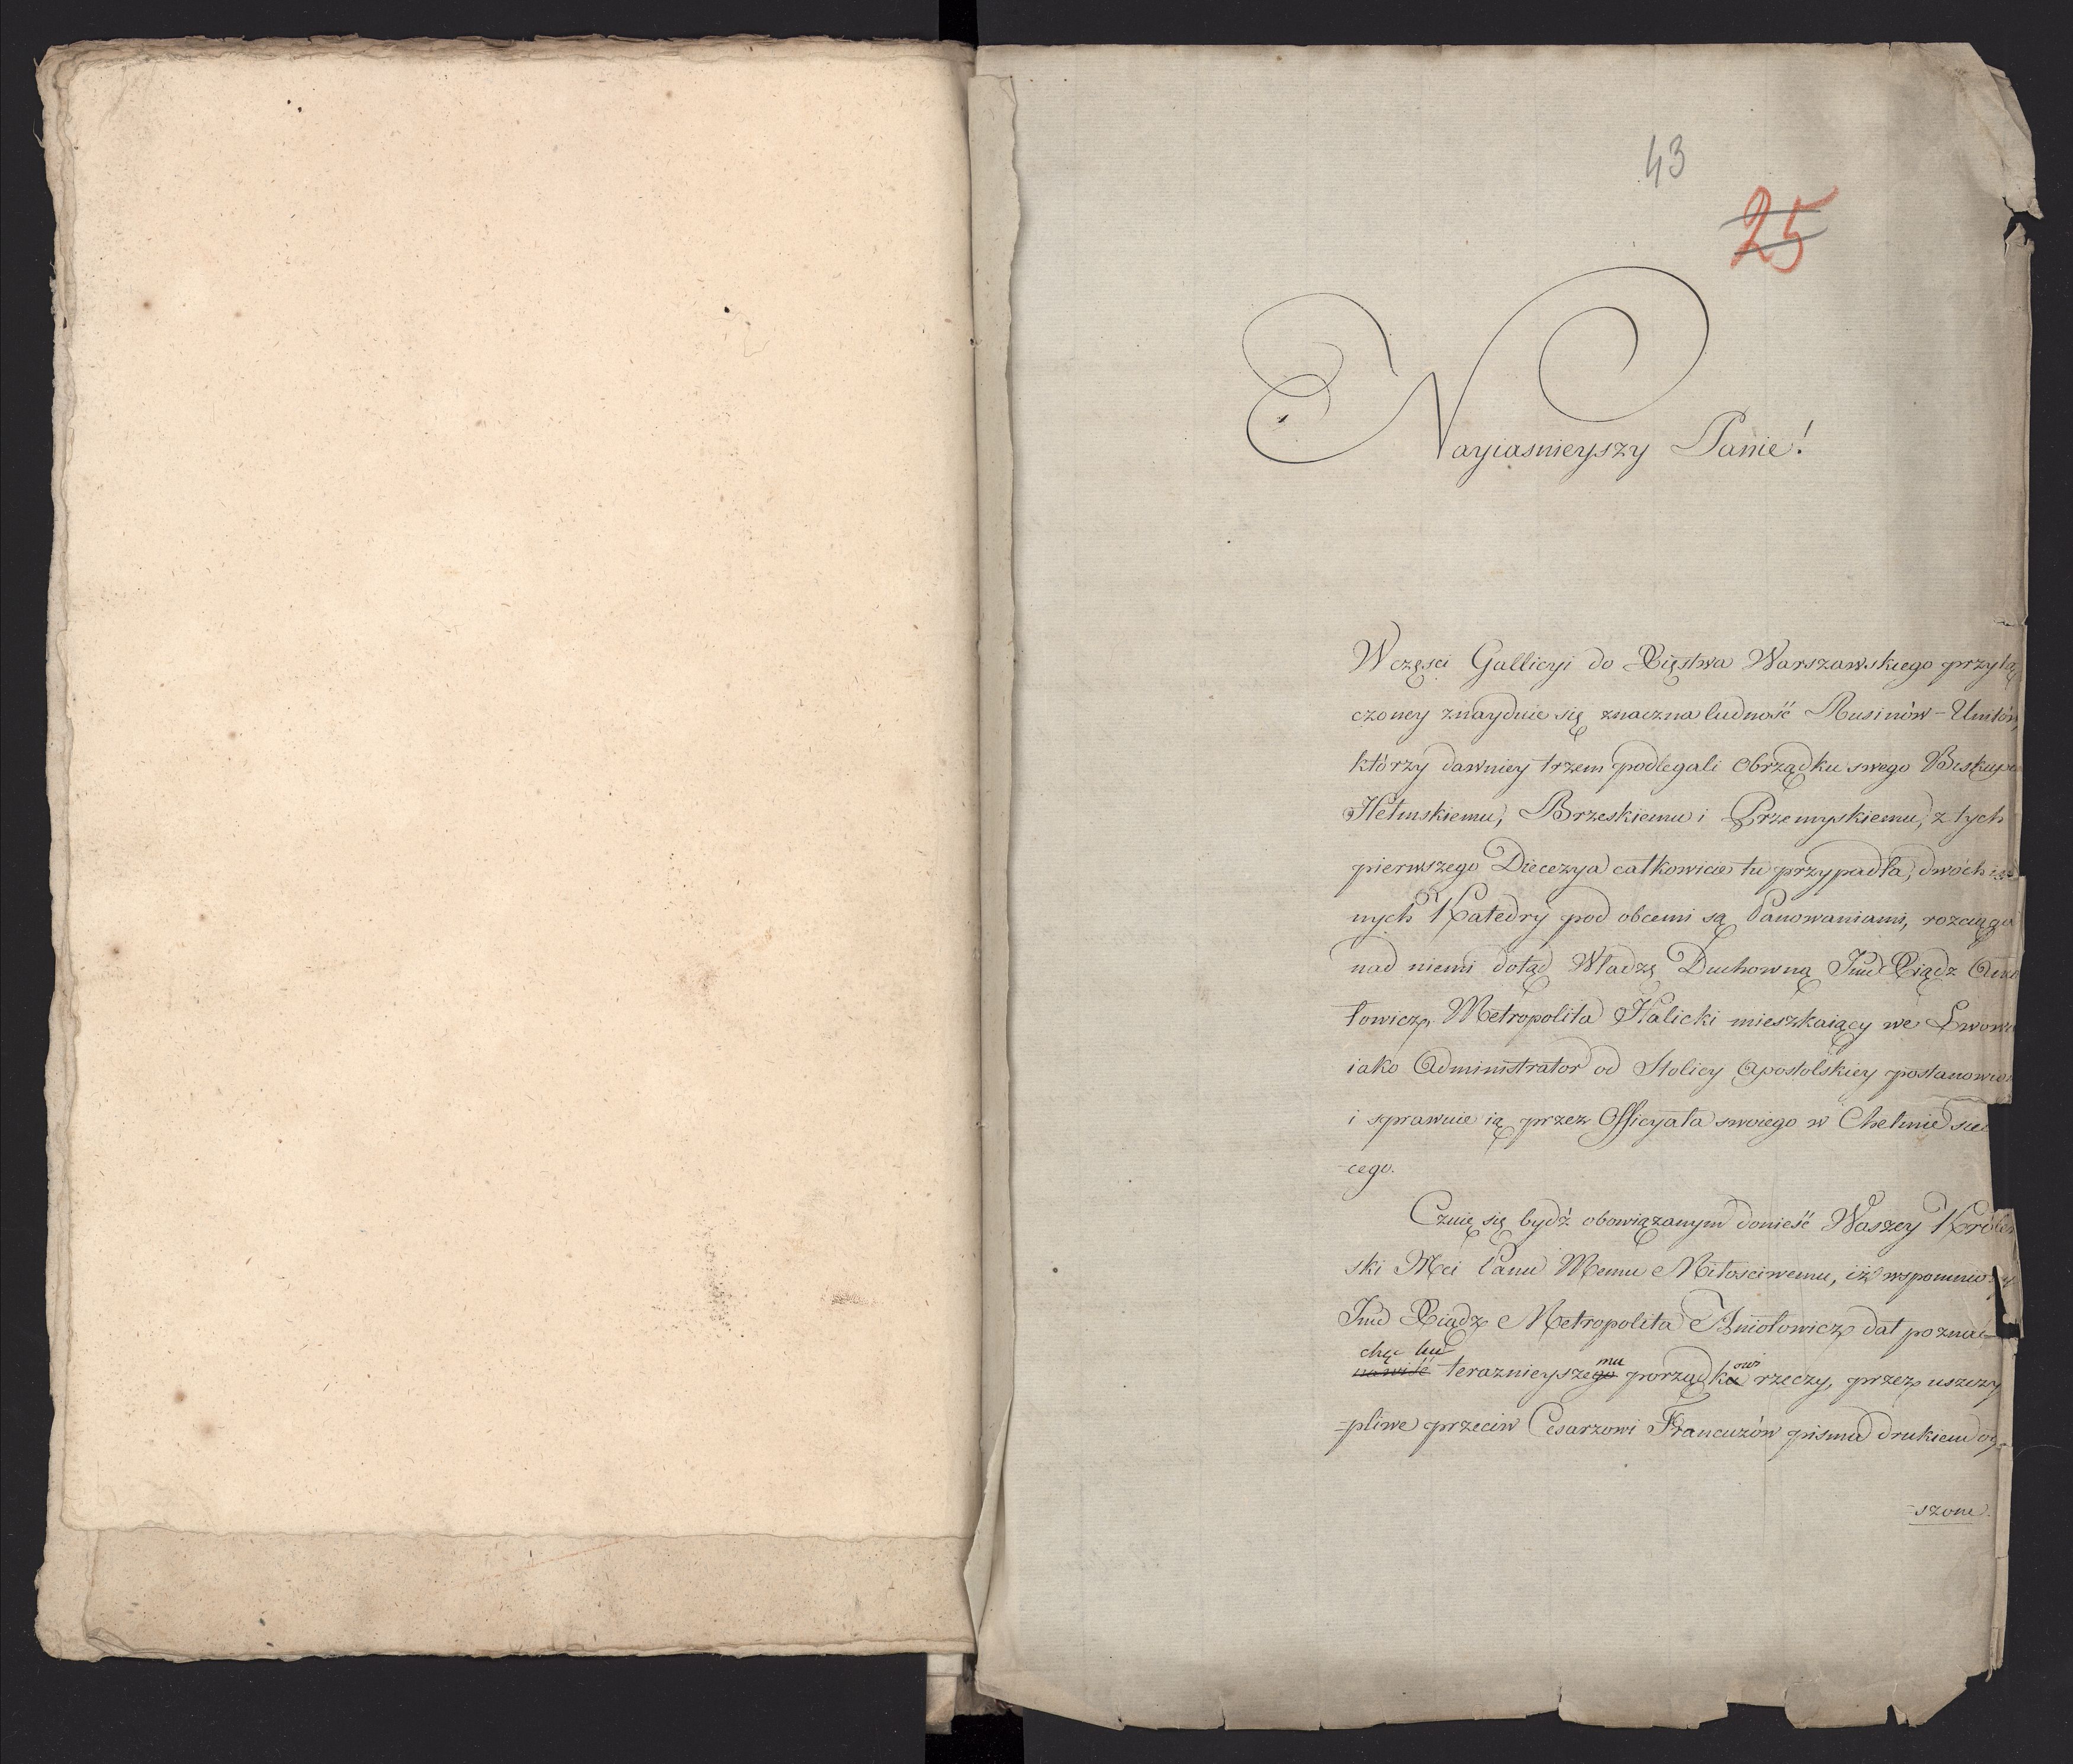 43
25
Nayiasnieyszy Panie!
W części Gallicyi do Xięstwa Warszawskiego przyłą
czoney znayduie się znaczna ludność Rusinów - Unitów,
którzy dawniey trzem podlegali Obrządku swego Biskupo
Hełmskiemu, Brzeskiemu i Przemyskiemu, z tych
pierwszego Diecezya całkowicie tu przypadła, dwóch in
nych Katedry pod obcemi są Panowaniami, rozciąga
nad niemi dotąd Władzę Duchowną Jmd Xiądz
łowicz, Metropolita Halicki mieszkaiący we Lwowi
iako Administrator od Stolicy Apostolskiey postanowio
i sprawuie ią przez Officyała swoiego w Chełmie sie
-cego.
Czuię się bydź obowiązanym donieść Waszey Królew
ski Mci Panu Memu Miłościwemu, iż wspomnio
Jmd Xiądz Metropolita Aniołowicz dał poznać
chęć ku mu owi
nawiść teraznieyszego porządku rzeczy, przez uszczy
-pliwe przeciw Cesarzowi Francuzów pisma drukiem og
-szone.